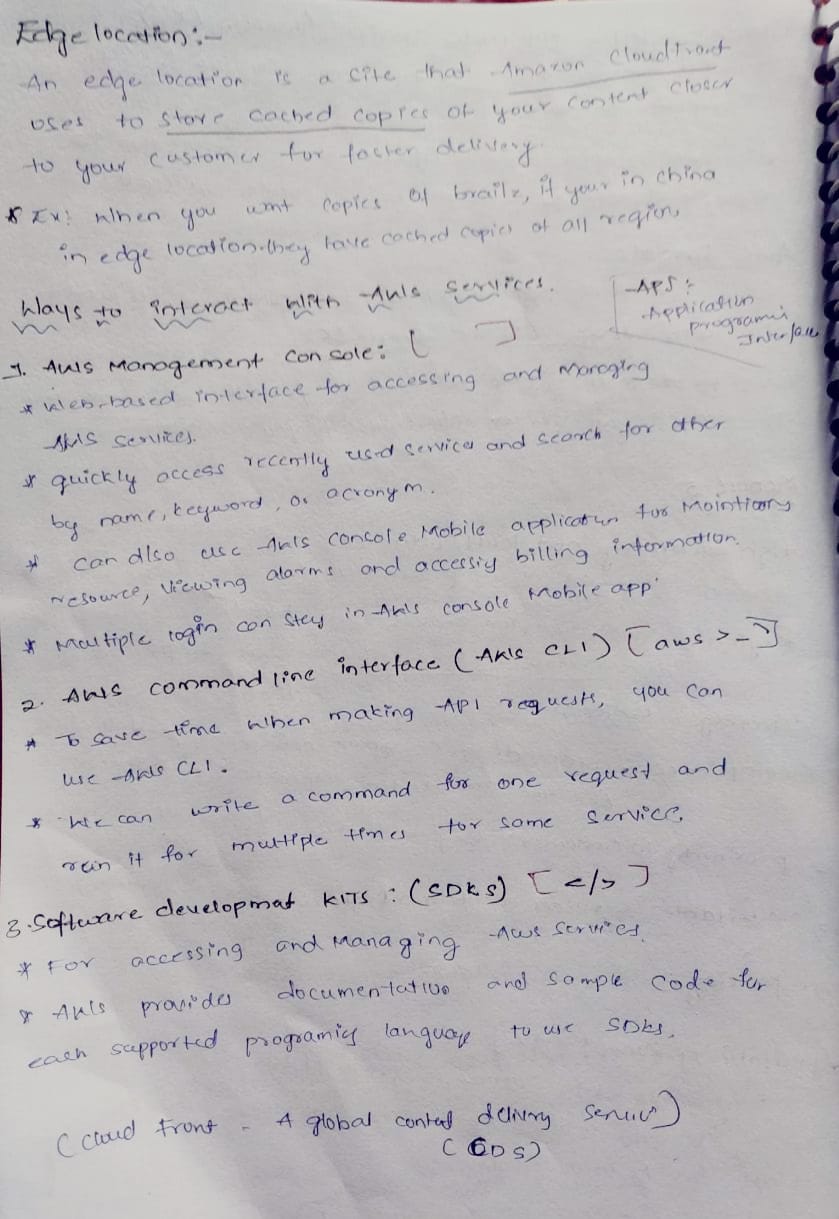 Edge location:-
An edge location is a site that Amazon Cloudfront
uses to store cached copies of your content closer
to your customer for faster delivery.
* Ex: When you wnt copies of brailz, if your in china
in edge location.they have cached copies of all region
Ways to interact with AWS services.
APS:
Application
programi
Interface
1. AWS Management console: [ ]
* Web-based interface for accessing and Managing
AWS services.
* quickly access recently used services and search for other
by name, keyword, or acronym.
* can also use AWS console Mobile application for
resource, viewing alarms and accessig billing information.
* Multiple login can stey in AWS console Mobile app.
2. AWS command line interface (AWS CLI) [aws >_]
* To save time when making API requests, you can
use AWS CLI.
* We can write a command for one request and
run it for multiple times for some service.
3. Software developmat KITS : (SDKS) [</>]
* For accessing and Managing AWS services.
* AWS provides documentation and sample code for
each supported programig language to use SDKs.
(Cloud Front - A global contet delivery service)
(CDS)